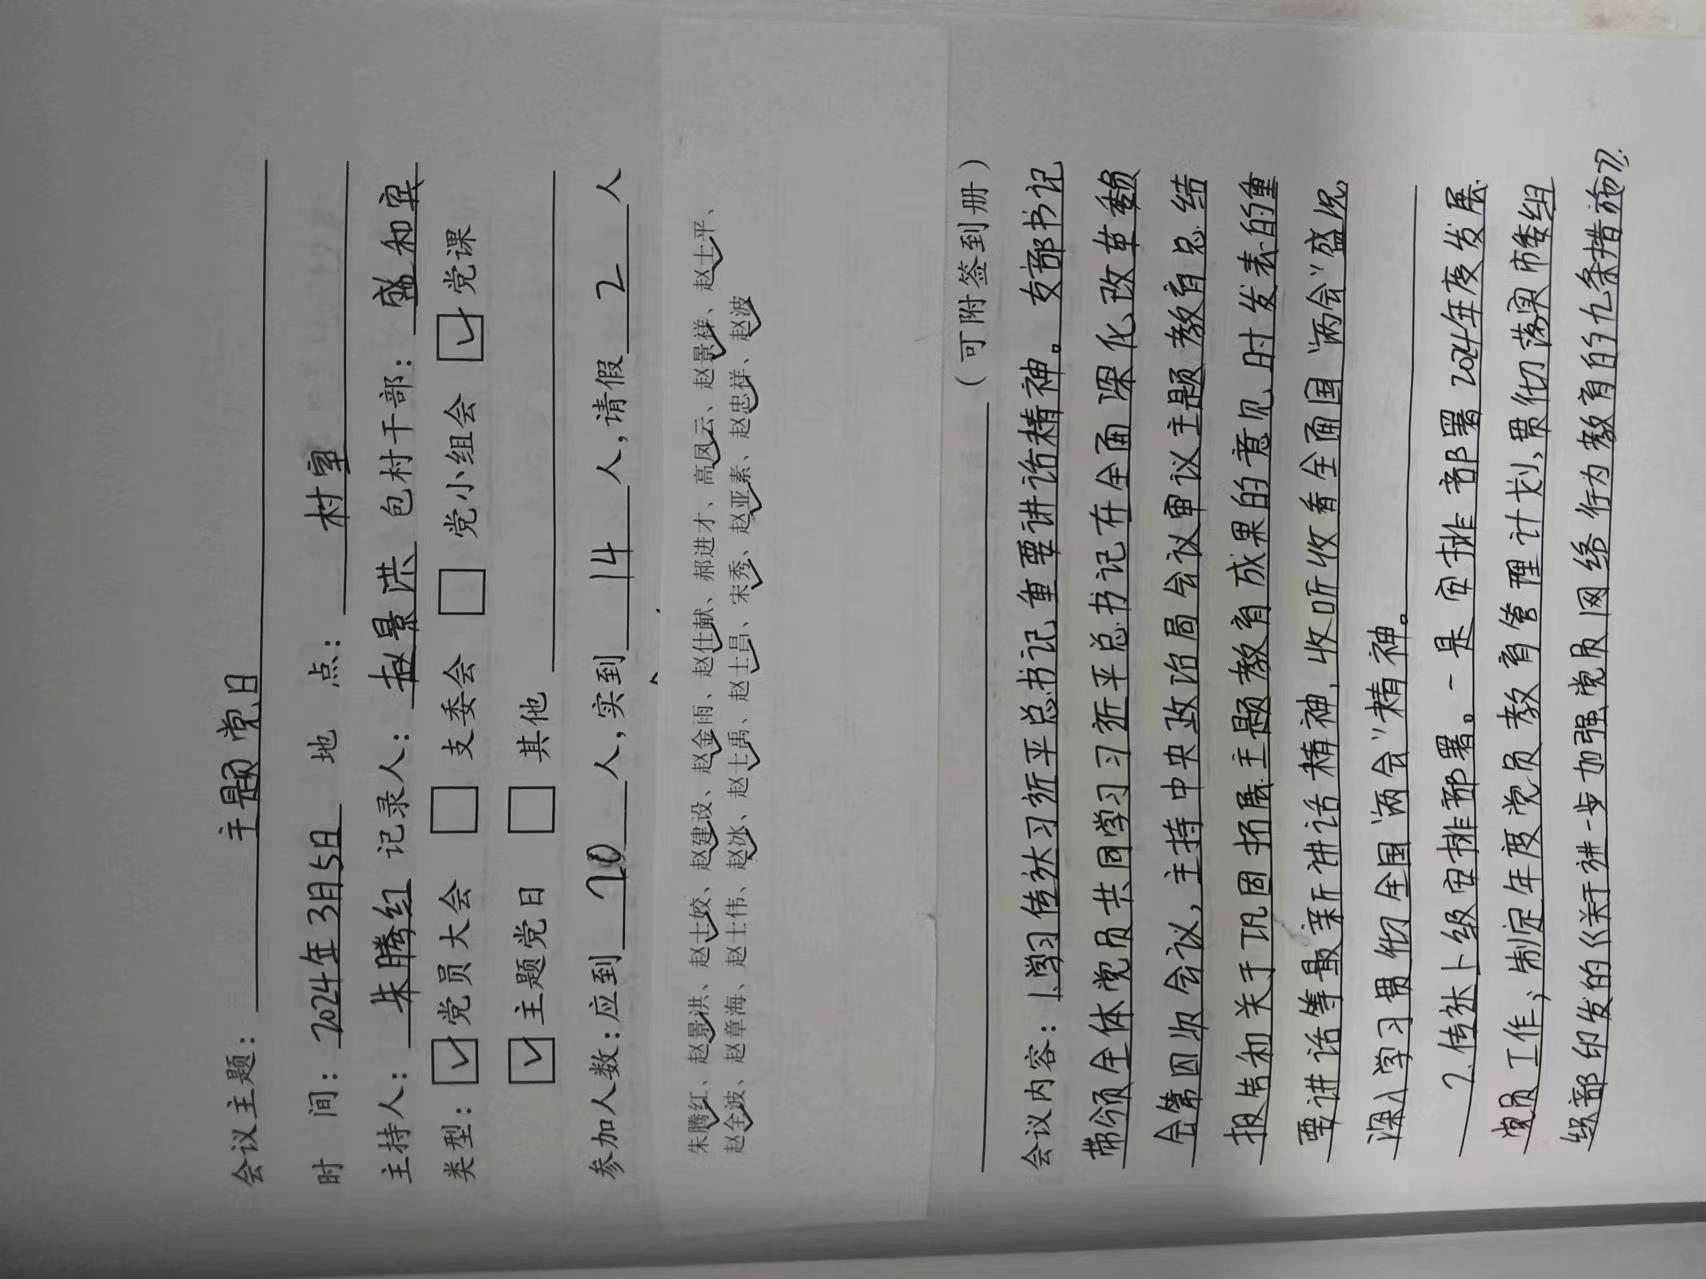 会议主题： 主题党日
时 间：2024年3月5日 地 点： 村室
主持人：朱腾红 记录人：赵景洪 包村干部：盛和宾
类型：☑党员大会 □支委会 □党小组会 ☑党课
☑主题党日 □其他
参加人数：应到 20 人，实到 14 人，请假 2 人
朱腾红、赵景洪、赵士姣、赵建设、赵金雨、赵仕献、郝进才、高凤云、赵景祥、赵士平、
赵全波、赵章海、赵士伟、赵冰、赵士禹、赵士昌、宋秀、赵亚素、赵忠祥、赵波
（可附签到册）
会议内容：1.学习传达习近平总书记重要讲话精神。支部书记
带领全体党员共同学习习近平总书记在全面深化改革委员
会第四次会议，主持中央政治局会议审议主题教育总结
报告和关于巩固拓展主题教育成果的意见时发表的重
要讲话等最新讲话精神，收听收看全面国“两会”盛况
深入学习贯彻全国“两会”精神。
2.传达上级安排部署。一是安排部署2024年度发展
党员工作，制定年度党员教育管理计划，贯彻落实市委组
织部印发的《关于进一步加强党员网络行为教育的九条措施》.